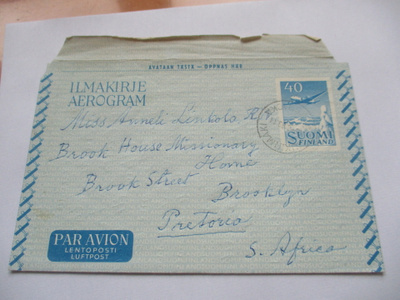 AVATAAN TÄSTÄ - ÖPPNAS HÄR
ILMAKIRJE
AEROGRAM
40
SUOMI
FINLAND
Miss Anneli
Brook House Missionary
Home
Brook Street Brooklyn
Pretoria
S. Africa
PAR AVION
LENTOPOSTI
LUFTPOST